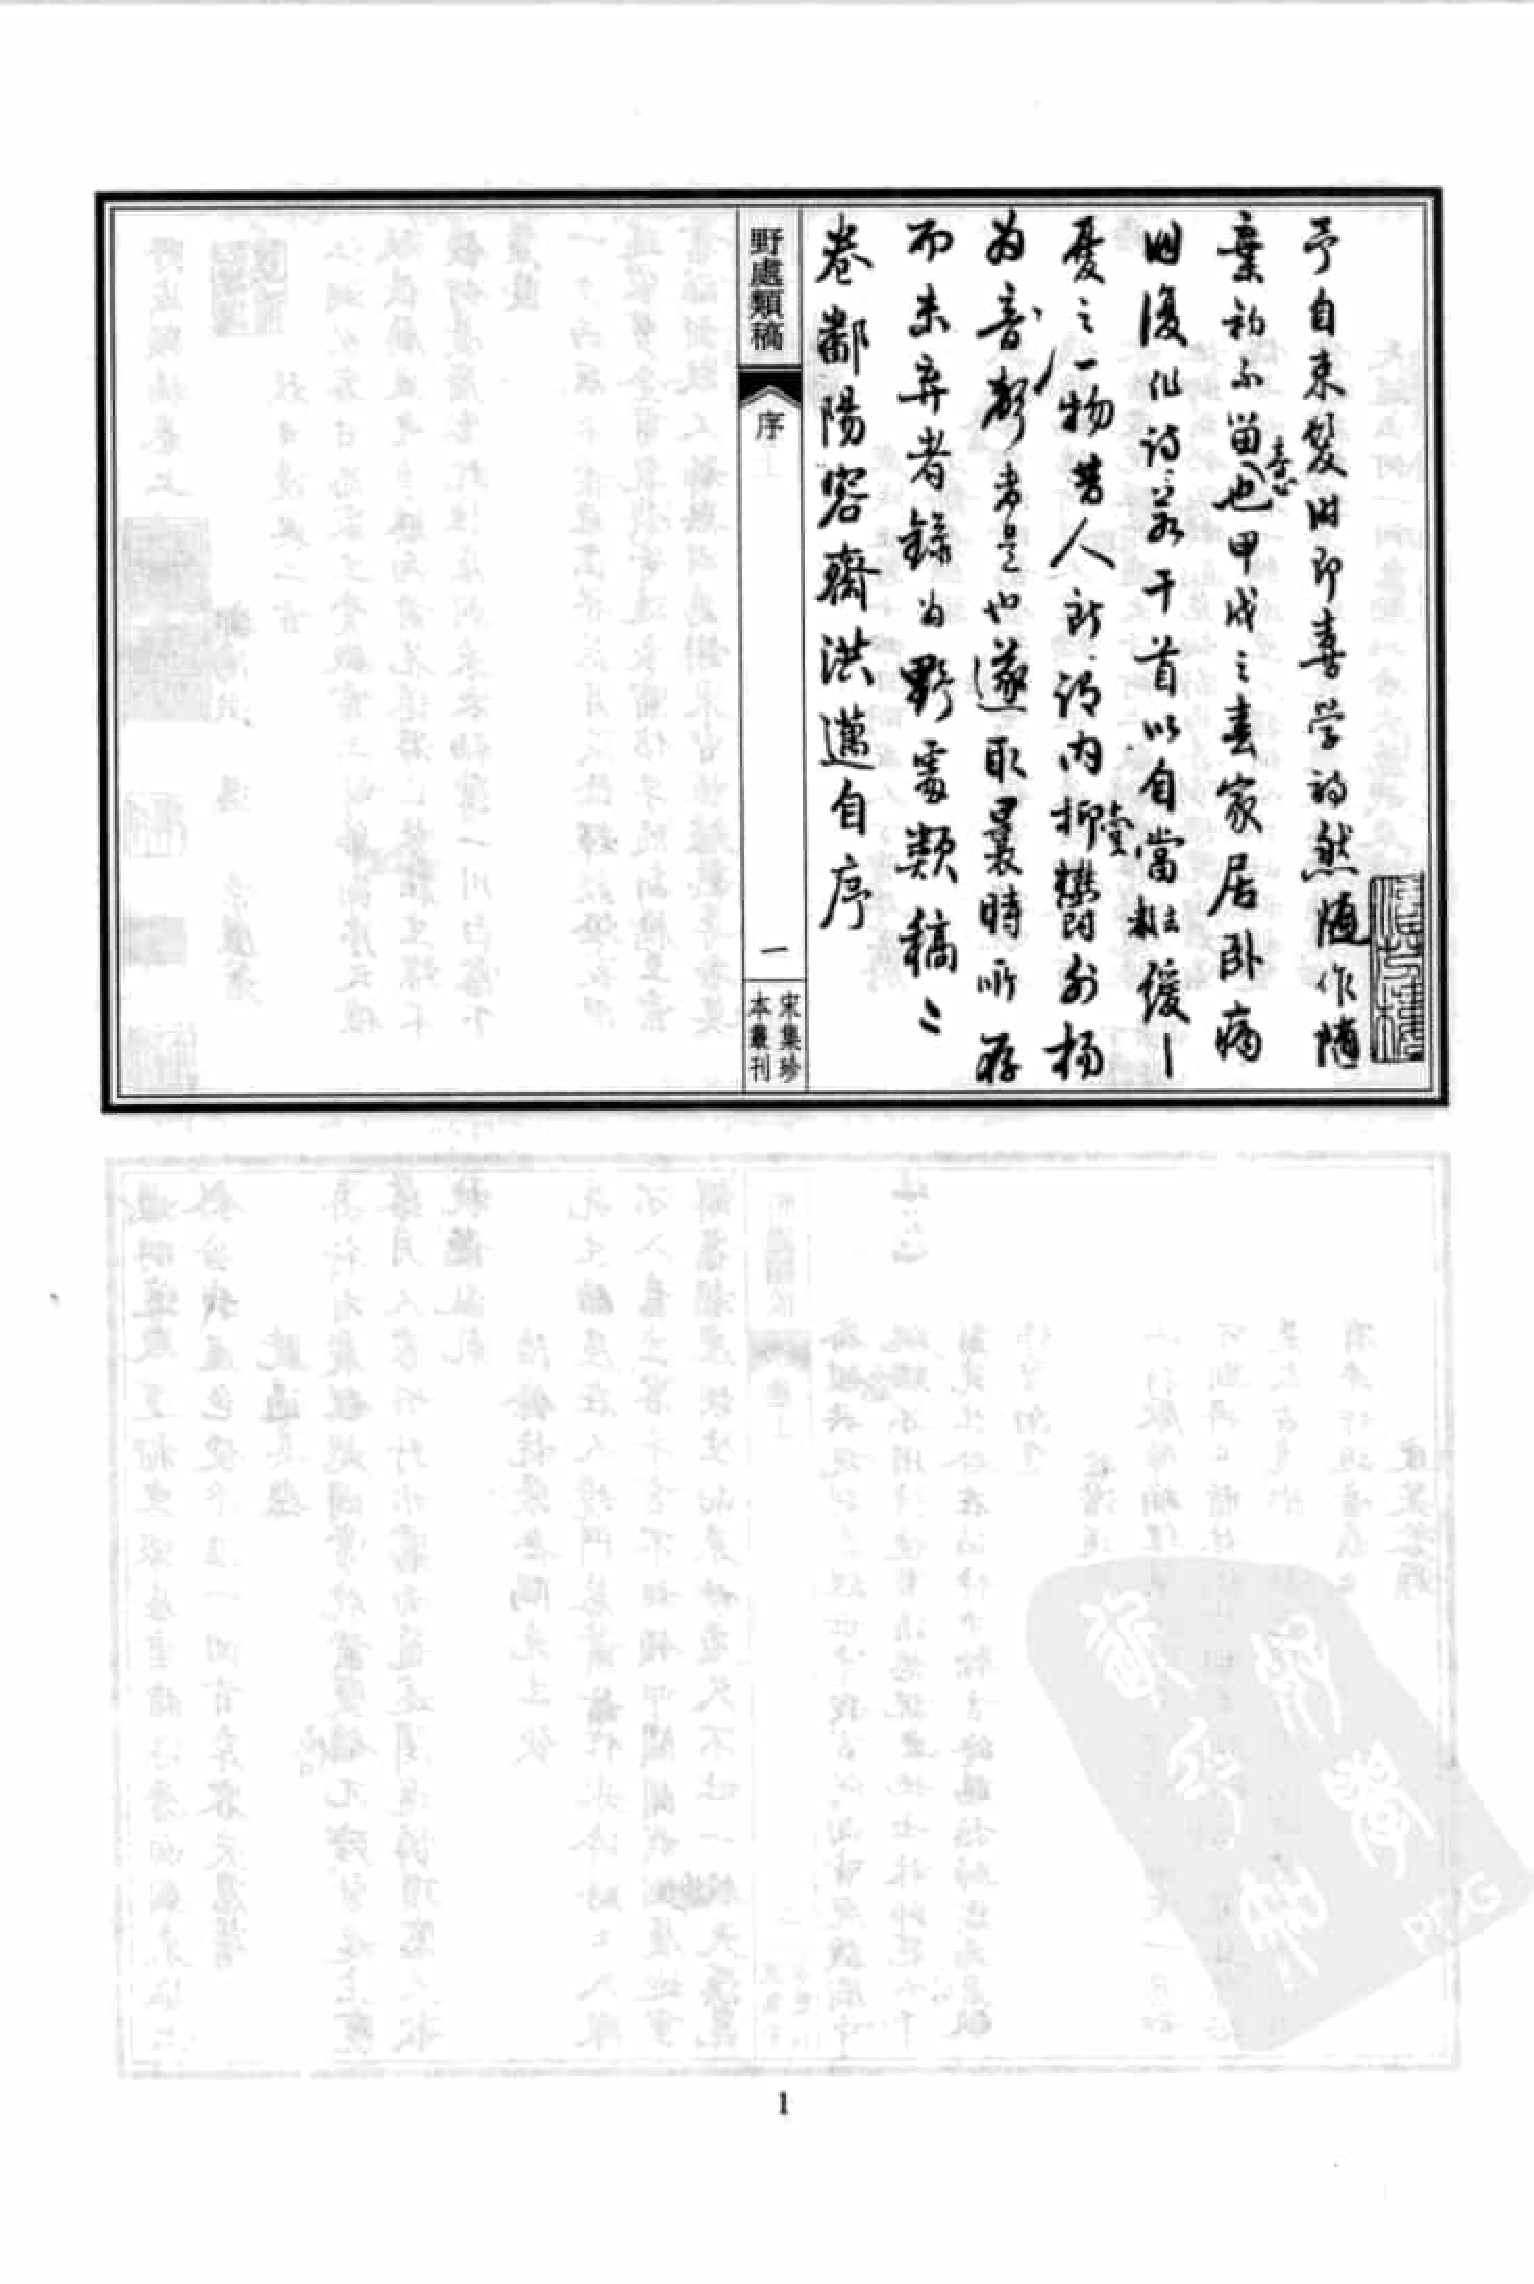 予自束髮时即喜学詩然随作随
棄初不留意也甲戌之春家居卧病
因復作詩若干首以自當
憂之一物昔人所謂内抑鬱外揚
为音聲者是也遂取曩時所存
而未弃者錄为野處類稿二
卷鄱陽容齋洪邁自序
野處類稿
序
一
宋集珍
本叢刊
1